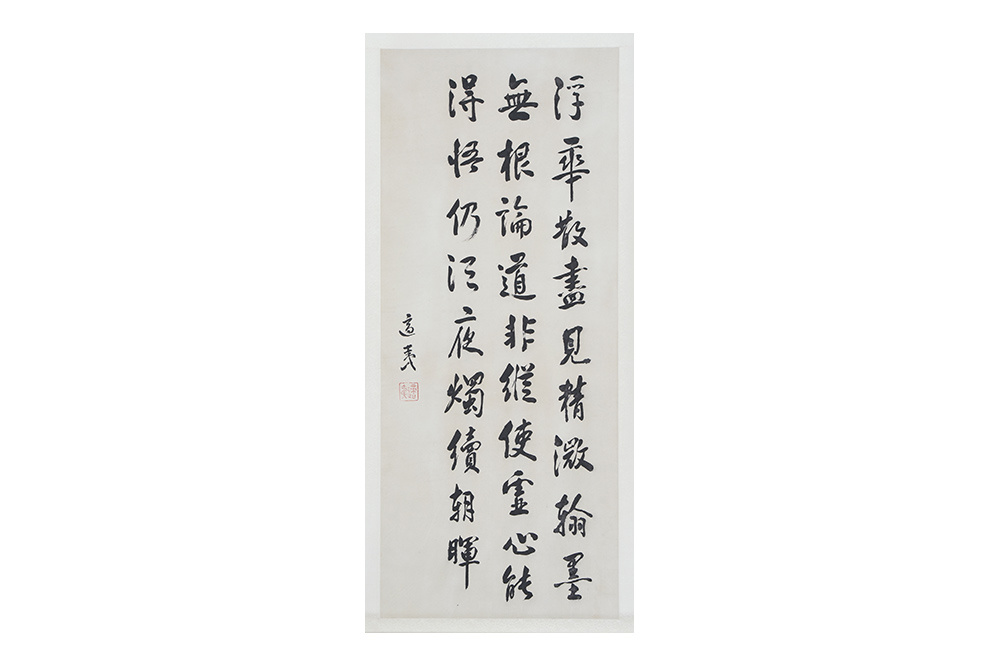 浮華散盡見精微翰墨
無根論道非縱使靈心能
得悟仍須夜燭續朝暉